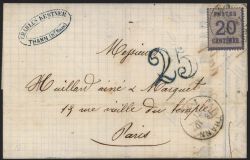 CHARLES KESTNER
THANN (Ht Rhin)
POSTES
20
CENTIMES
Messieurs
25
Huillard aîné & Marquet
19 rue vieille du temple
Paris
THANN